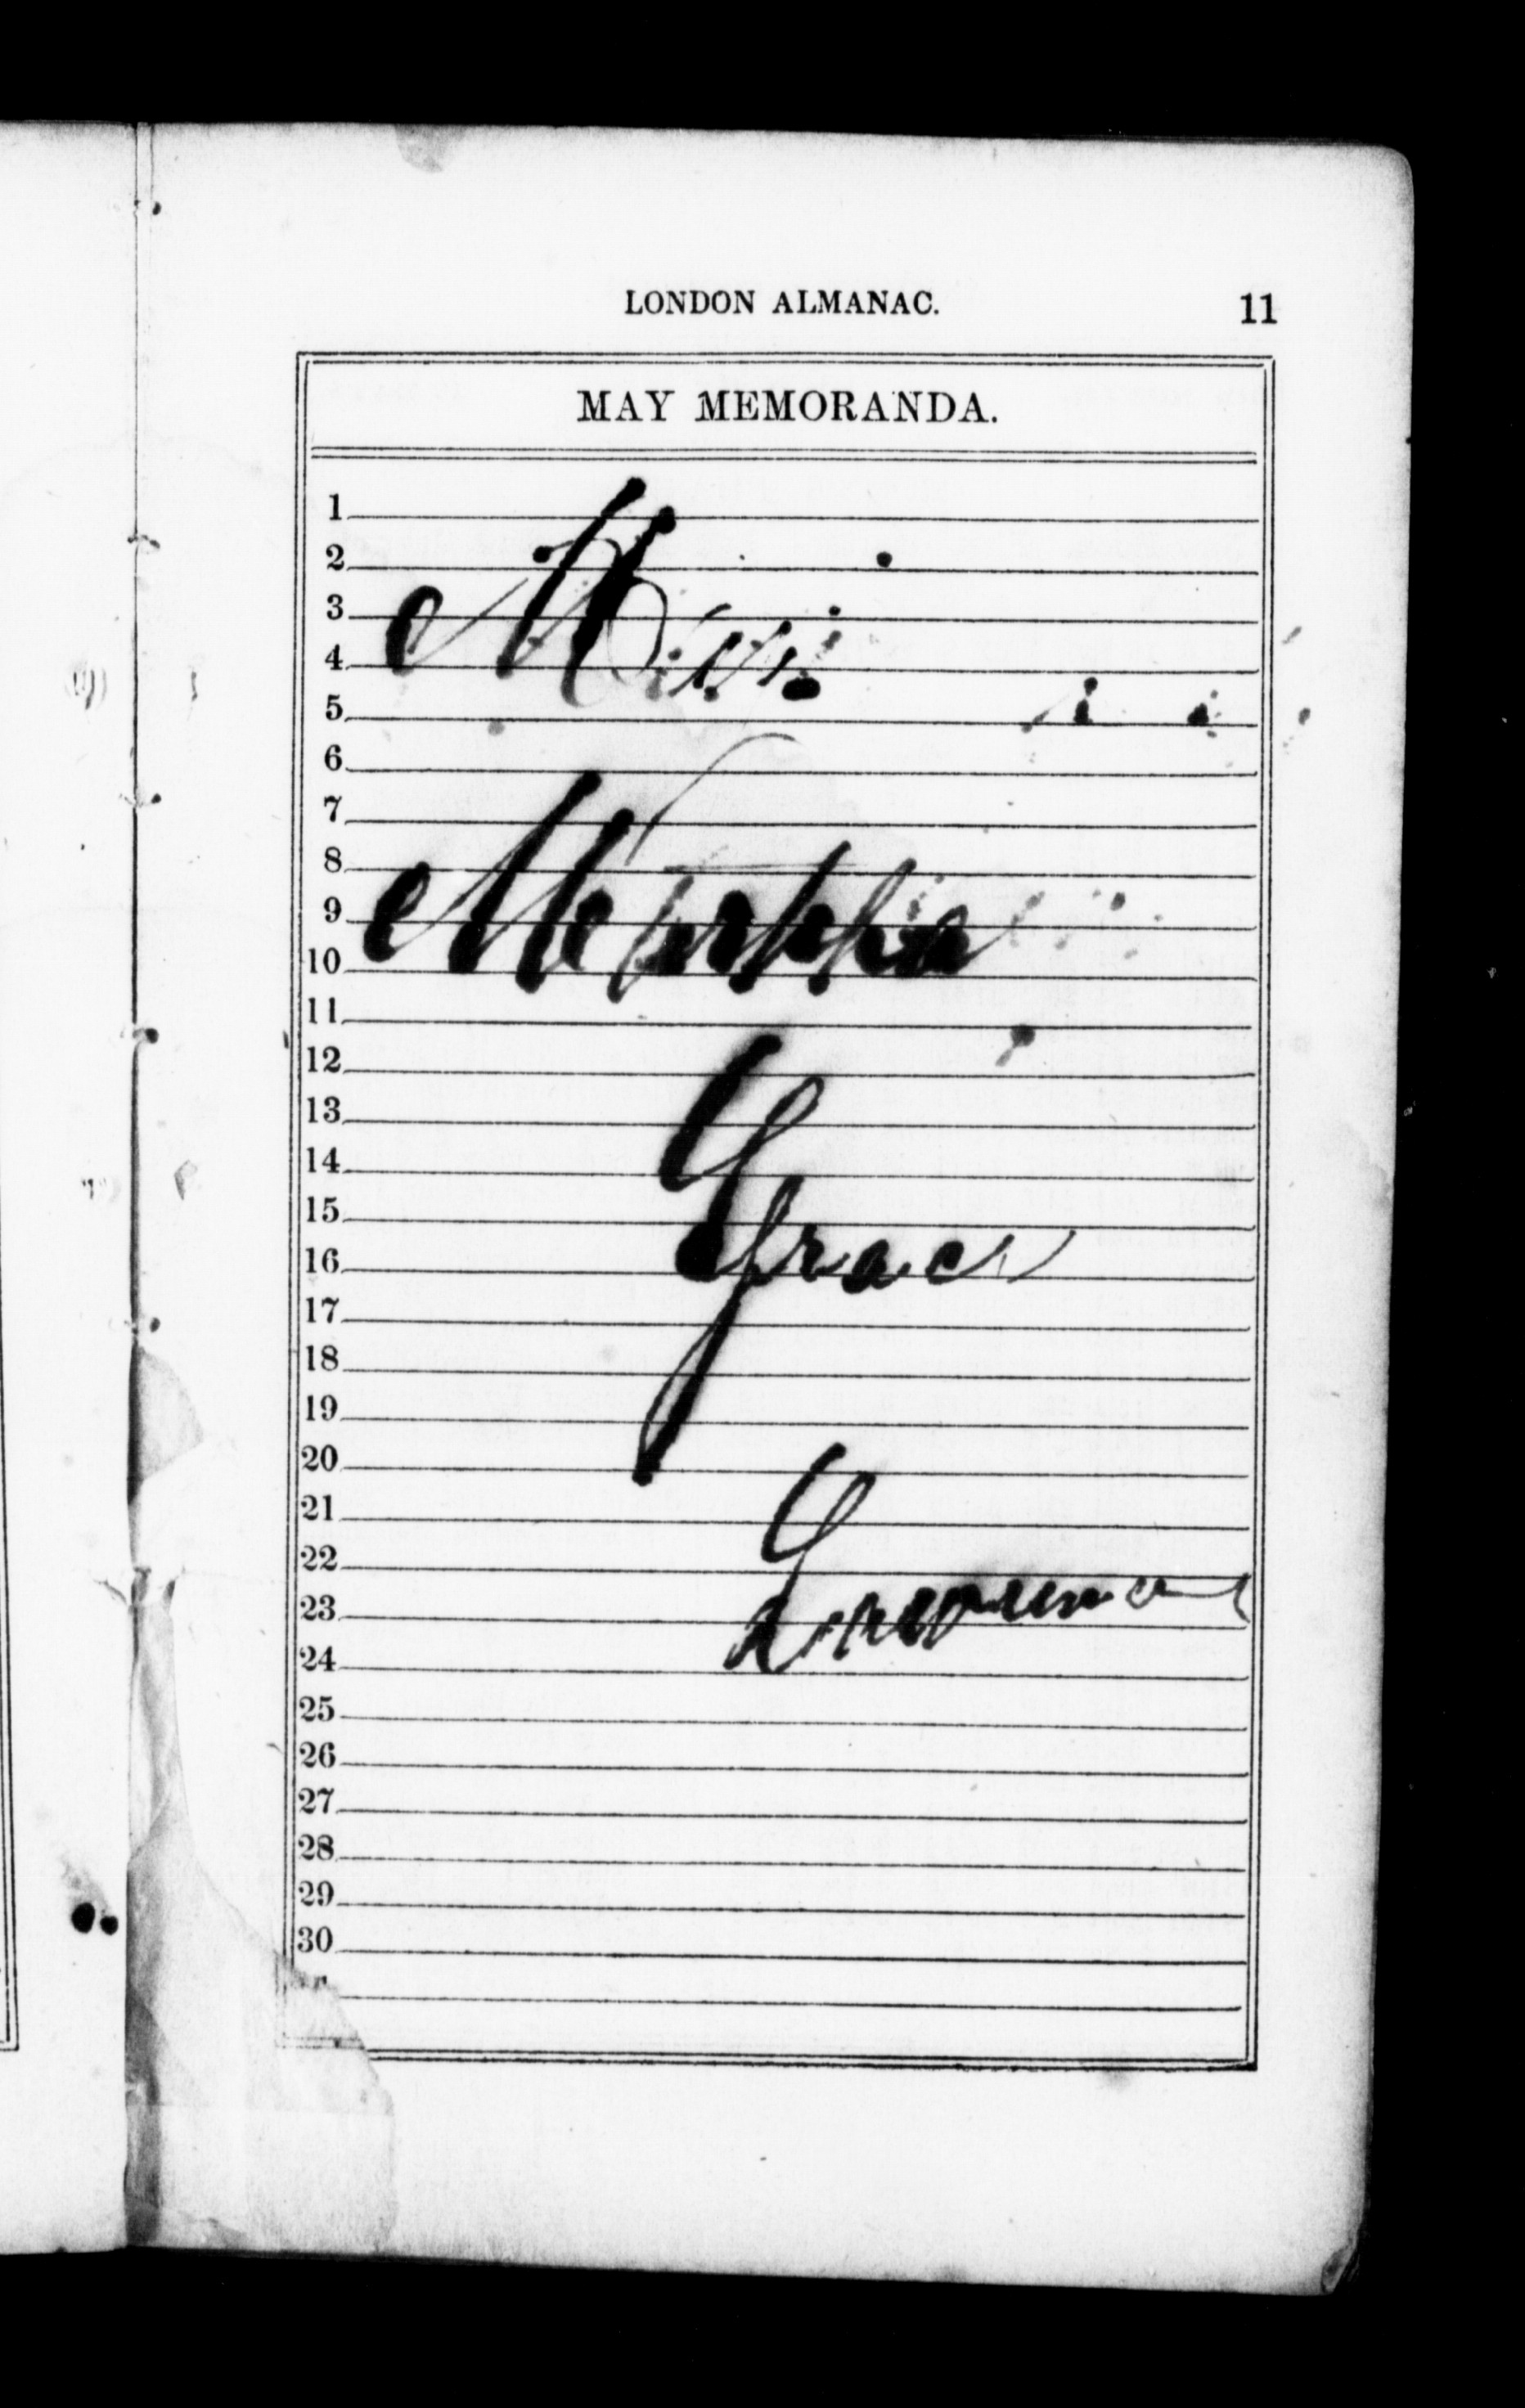 LONDON ALMANAC.
11
MAY MEMORANDA.
1
2
3
Miss
4
5
6
7
8
9
Martha
10
11
12
13
14
15
16
Grace
17
18
19
20
21
22
23
24
25
26
27
28
29
30